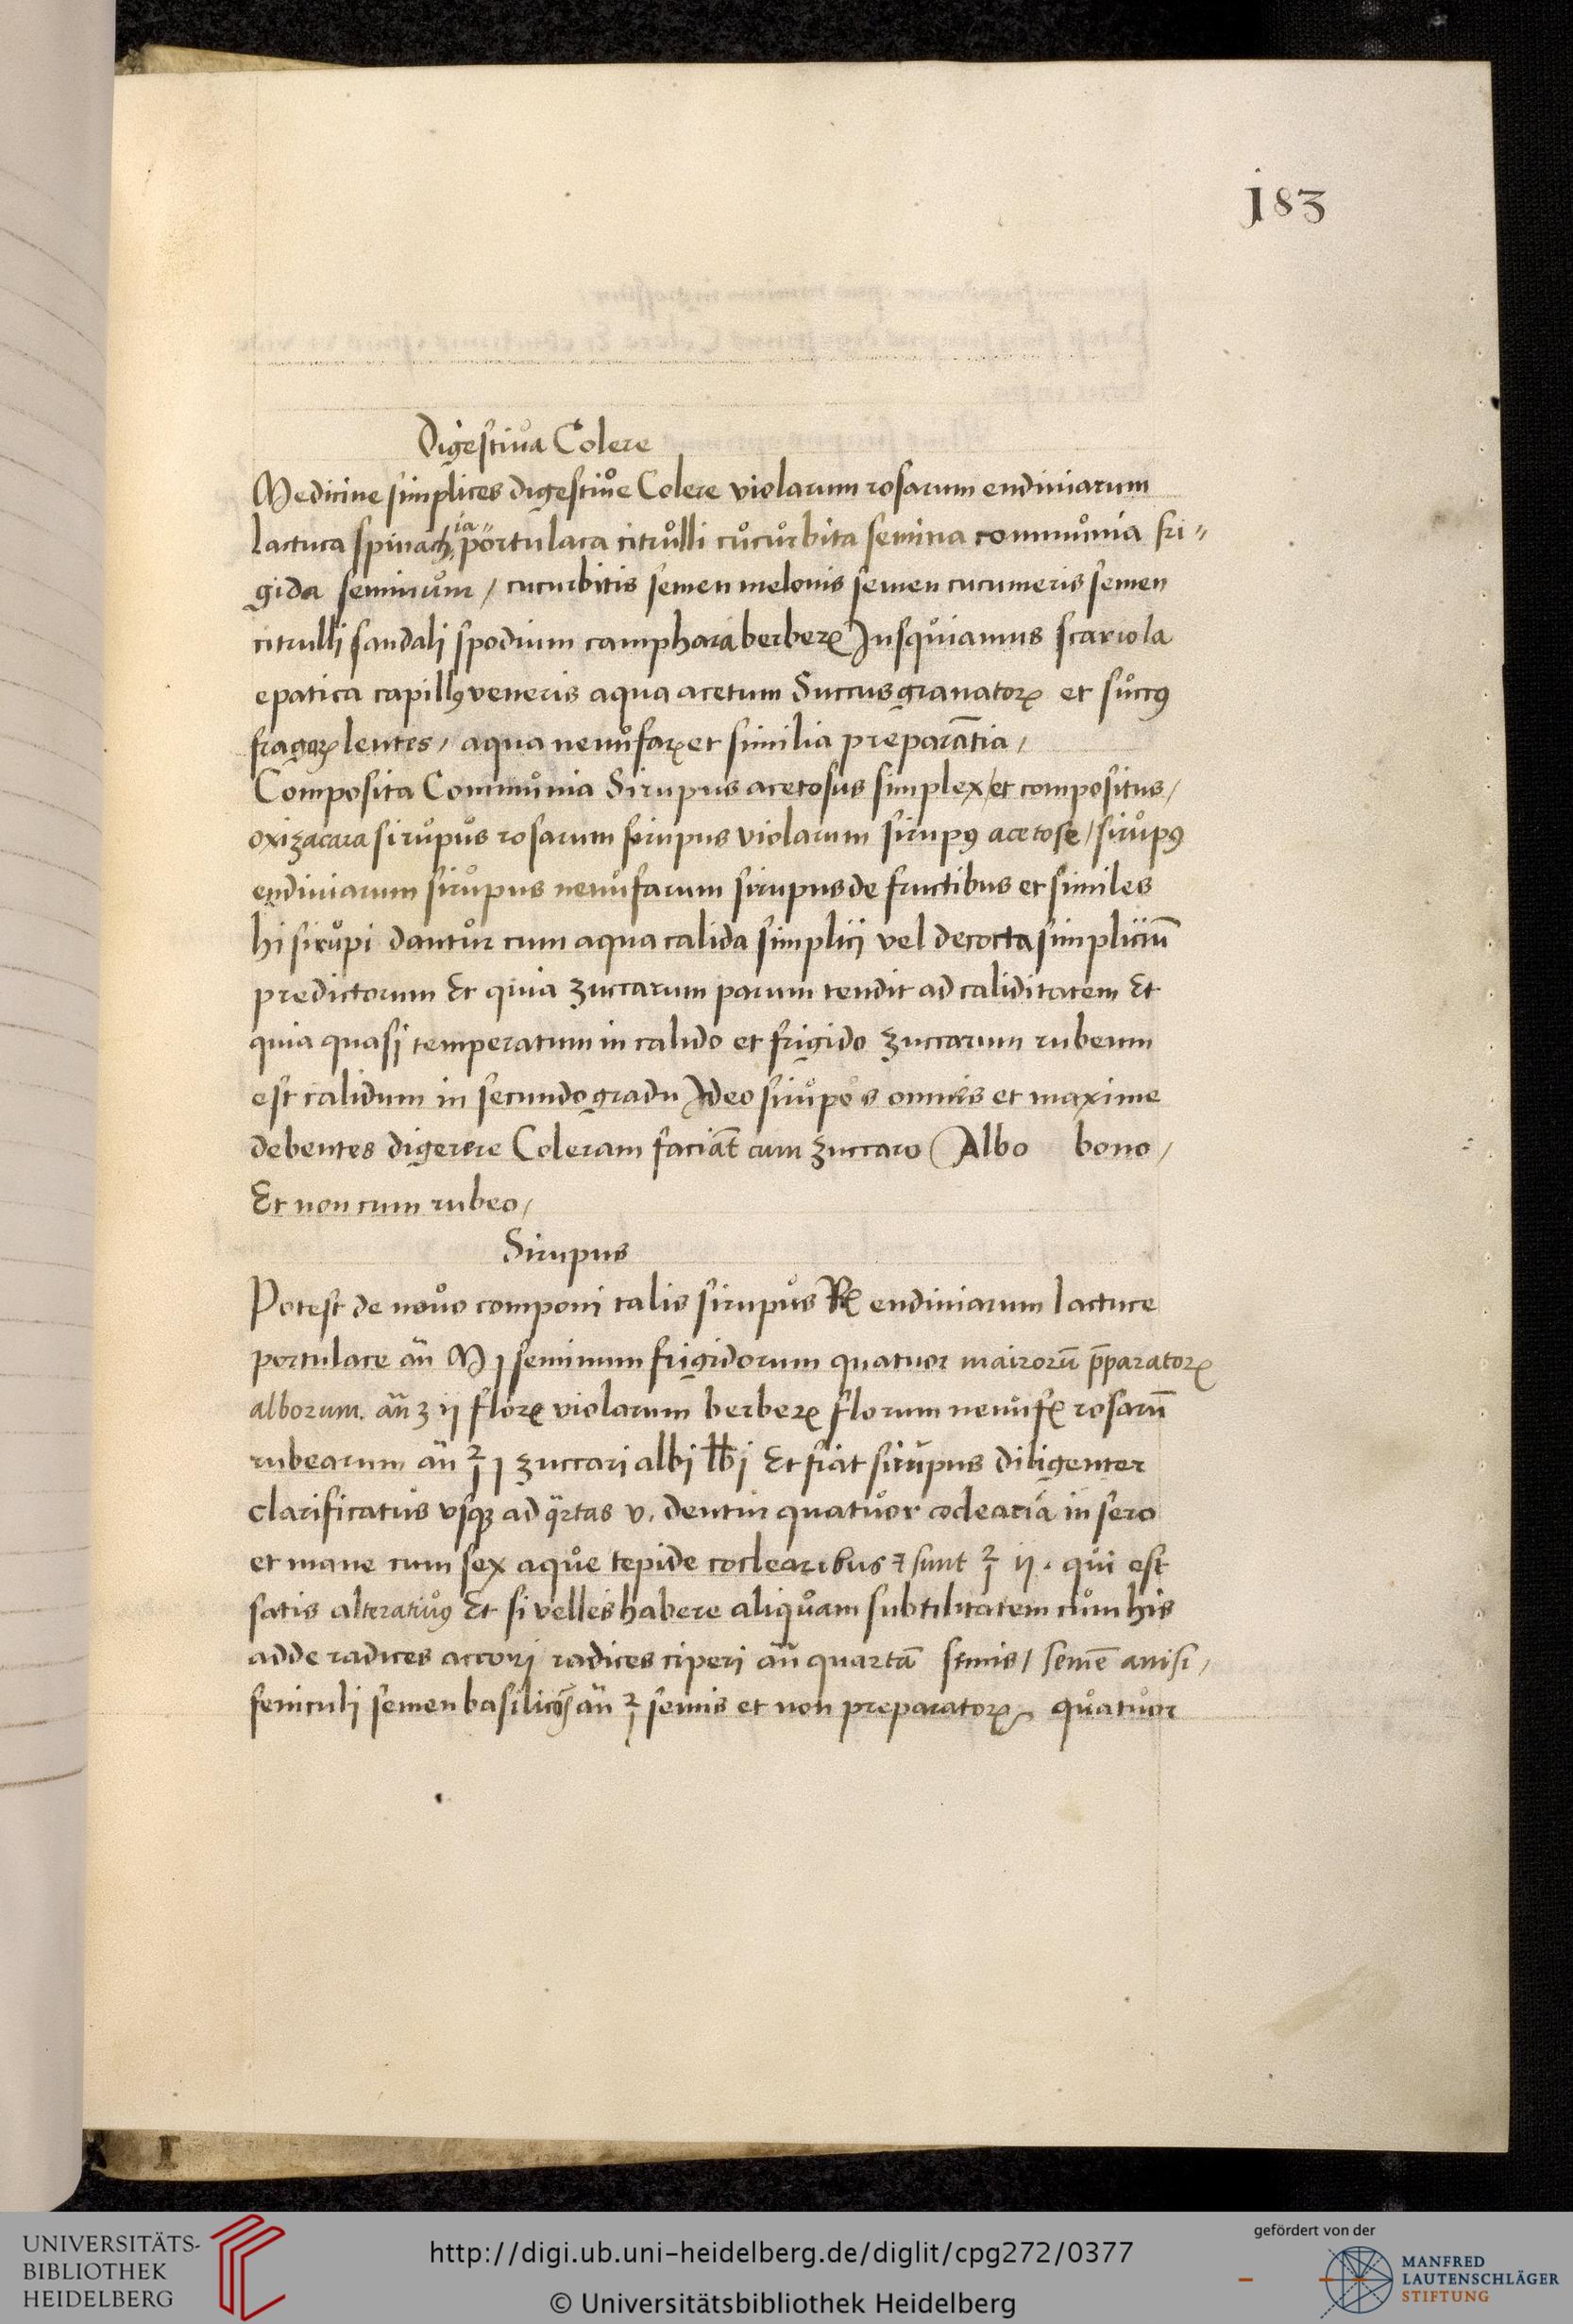 j83
Digestiva Colere
Medicine simplices digestiůe Colere violarum rosarum endiviarum
lactuca spinachia portulaca citrůlli cůcůrbita semina commůnia fri〃
gida seminům / cucurbitis semen melonis semen cucumeris semen
citrulli sandali spodium camphara berberꝝ Jusqůiamus scariola
epatica capillꝰ veneris aqua acetum Succus granatorꝝ et sůccꝰ
fragorꝝ lentes / aqua nenůfarꝝ et similia preparātia /
Composita Commůnia Sirupus acetosus simplex / et compositus /
oxizacara sirůpůs rosarum sirupus violarum sirupꝰ acetose / sirůpꝰ
endiviarum sirůpus nenůfarum sirupus de fructibus et similes
hi sirůpi dantůr cum aqua calida simplici vel decocta simpliciū
predictorum Et quia zuccarum parum tendit ad caliditatem Et
quia quasi temperatum in calido et frigido zuccarum rubeum
est calidum in secundo gradu Ideo sirůpos omnis et maxime
debentes digerere Coleram faciāt cum zuccaro Albo bono /
Et non cum rubeo /
Sirupus
Potest de noůo componi talis sirupůs Rꝝ endiviarum lactuce
portulace añ M j seminum frigidorum quatuor maiorū p̄paratorꝝ
alborum. añ ʒ ij florꝝ violarum berberꝝ florum nenůfꝝ rosarū
rubearum añ ℥ j zuccari albi lb j Et fiat sirůpus diligenter
clarificatus vsqꝫ ad qrtas v. dentur quatůor coclearia in sero
et mane cum sex aqůe tepide coclearibus ⁊ sunt ℥ ij. qůi est
satis alteratiůꝰ Et si velles habere aliqůam subtilitatem cům his
adde radices accori radices ciperi añ quartā semis / semē anisi /
feniculi semen basilicō añ ℥ semis et non preparatorꝝ qůatůor
UNIVERSITÄTS-
BIBLIOTHEK
HEIDELBERG
http://digi.ub.uni-heidelberg.de/diglit/cpg272/0377
© Universitätsbibliothek Heidelberg
gefördert von der
MANFRED
LAUTENSCHLÄGER
STIFTUNG